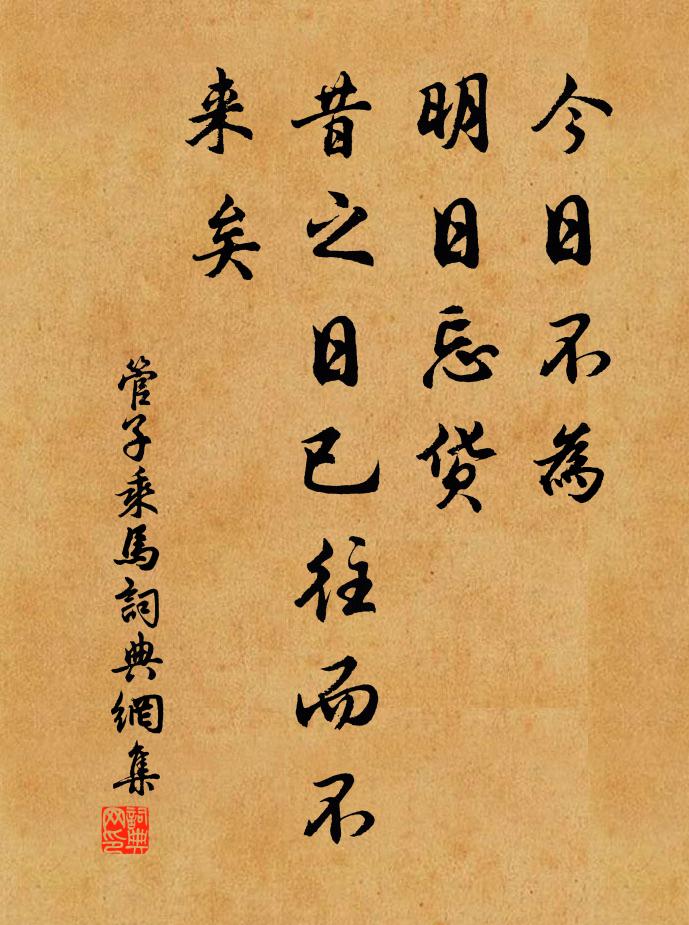 今日不為
明日忘貨
昔之日已往而不
来矣
管子乘馬詞典網集
詞典网印